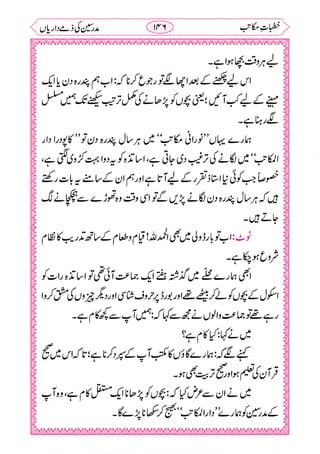 خطباتِ مکاتب ۱۴۶ مدرسین کی ذمے داریاں
لیے ہر وقت اچھا ہوا ہے۔
اس لیے سیکھنے کے بعد اچھا لگے تو رجوع کرنا کہ: اب ہم پندرہ دن یا ایک
مہینے کے لیے کب آئیں؟ یعنی بچوں کو پڑھانے کی ترتیب سیکھنے تک ہمیں مسلسل
لگے رہنا ہے۔
ہمارے یہاں ”نورانی مکاتب“ میں ہر سال ”پندرہ دن“ تو دار
المکاتب“ میں لگانے کی ترغیب دی جاتی ہے، اساتذہ کو یہ دوا بہت کڑوی لگتی ہے،
خصوصاً جب کوئی نیا استاذ تقرر کے لیے آتا ہے اور ہم ان کے سامنے یہ بات رکھتے
ہیں کہ ہر سال پندرہ دن لگانے پڑیں گے تو اسی وقت وہ تھوڑے سے ہچکچانے لگ
جاتے ہیں۔
نوٹ: اب تو باردولی میں بھی الحمد للہ! قیام و طعام کے ساتھ تدریب کا نظام
شروع ہو چکا ہے۔
ابھی ہمارے محلے میں گذشتہ ہفتے ایک جماعت آئی تھی تو اساتذہ رات کو
اسکول کے بچوں کو لے کر بیٹھے تھے اور بورڈ پر حروف شناسی اور دیگر چیزوں کی مشق کروا
رہے تھے تو جماعت والوں نے مجھ سے کہا کہ: ہمیں آپ سے کچھ کام ہے۔
میں نے کہا: کیا کام ہے؟
کہنے لگے کہ: ہمارے گاؤں کا مکتب آپ کے سپرد کرنا ہے؛ تاکہ اس میں صحیح
قرآن کی تعلیم ہو اور صحیح تربیت بھی ہو۔
میں نے ان سے عرض کیا کہ: بچوں کو پڑھانا ایک مستقل کام ہے، وہ آپ
کے مدرسین کو ہمارے ”دار المکاتب“ بھیج کر سکھانا پڑے گا۔